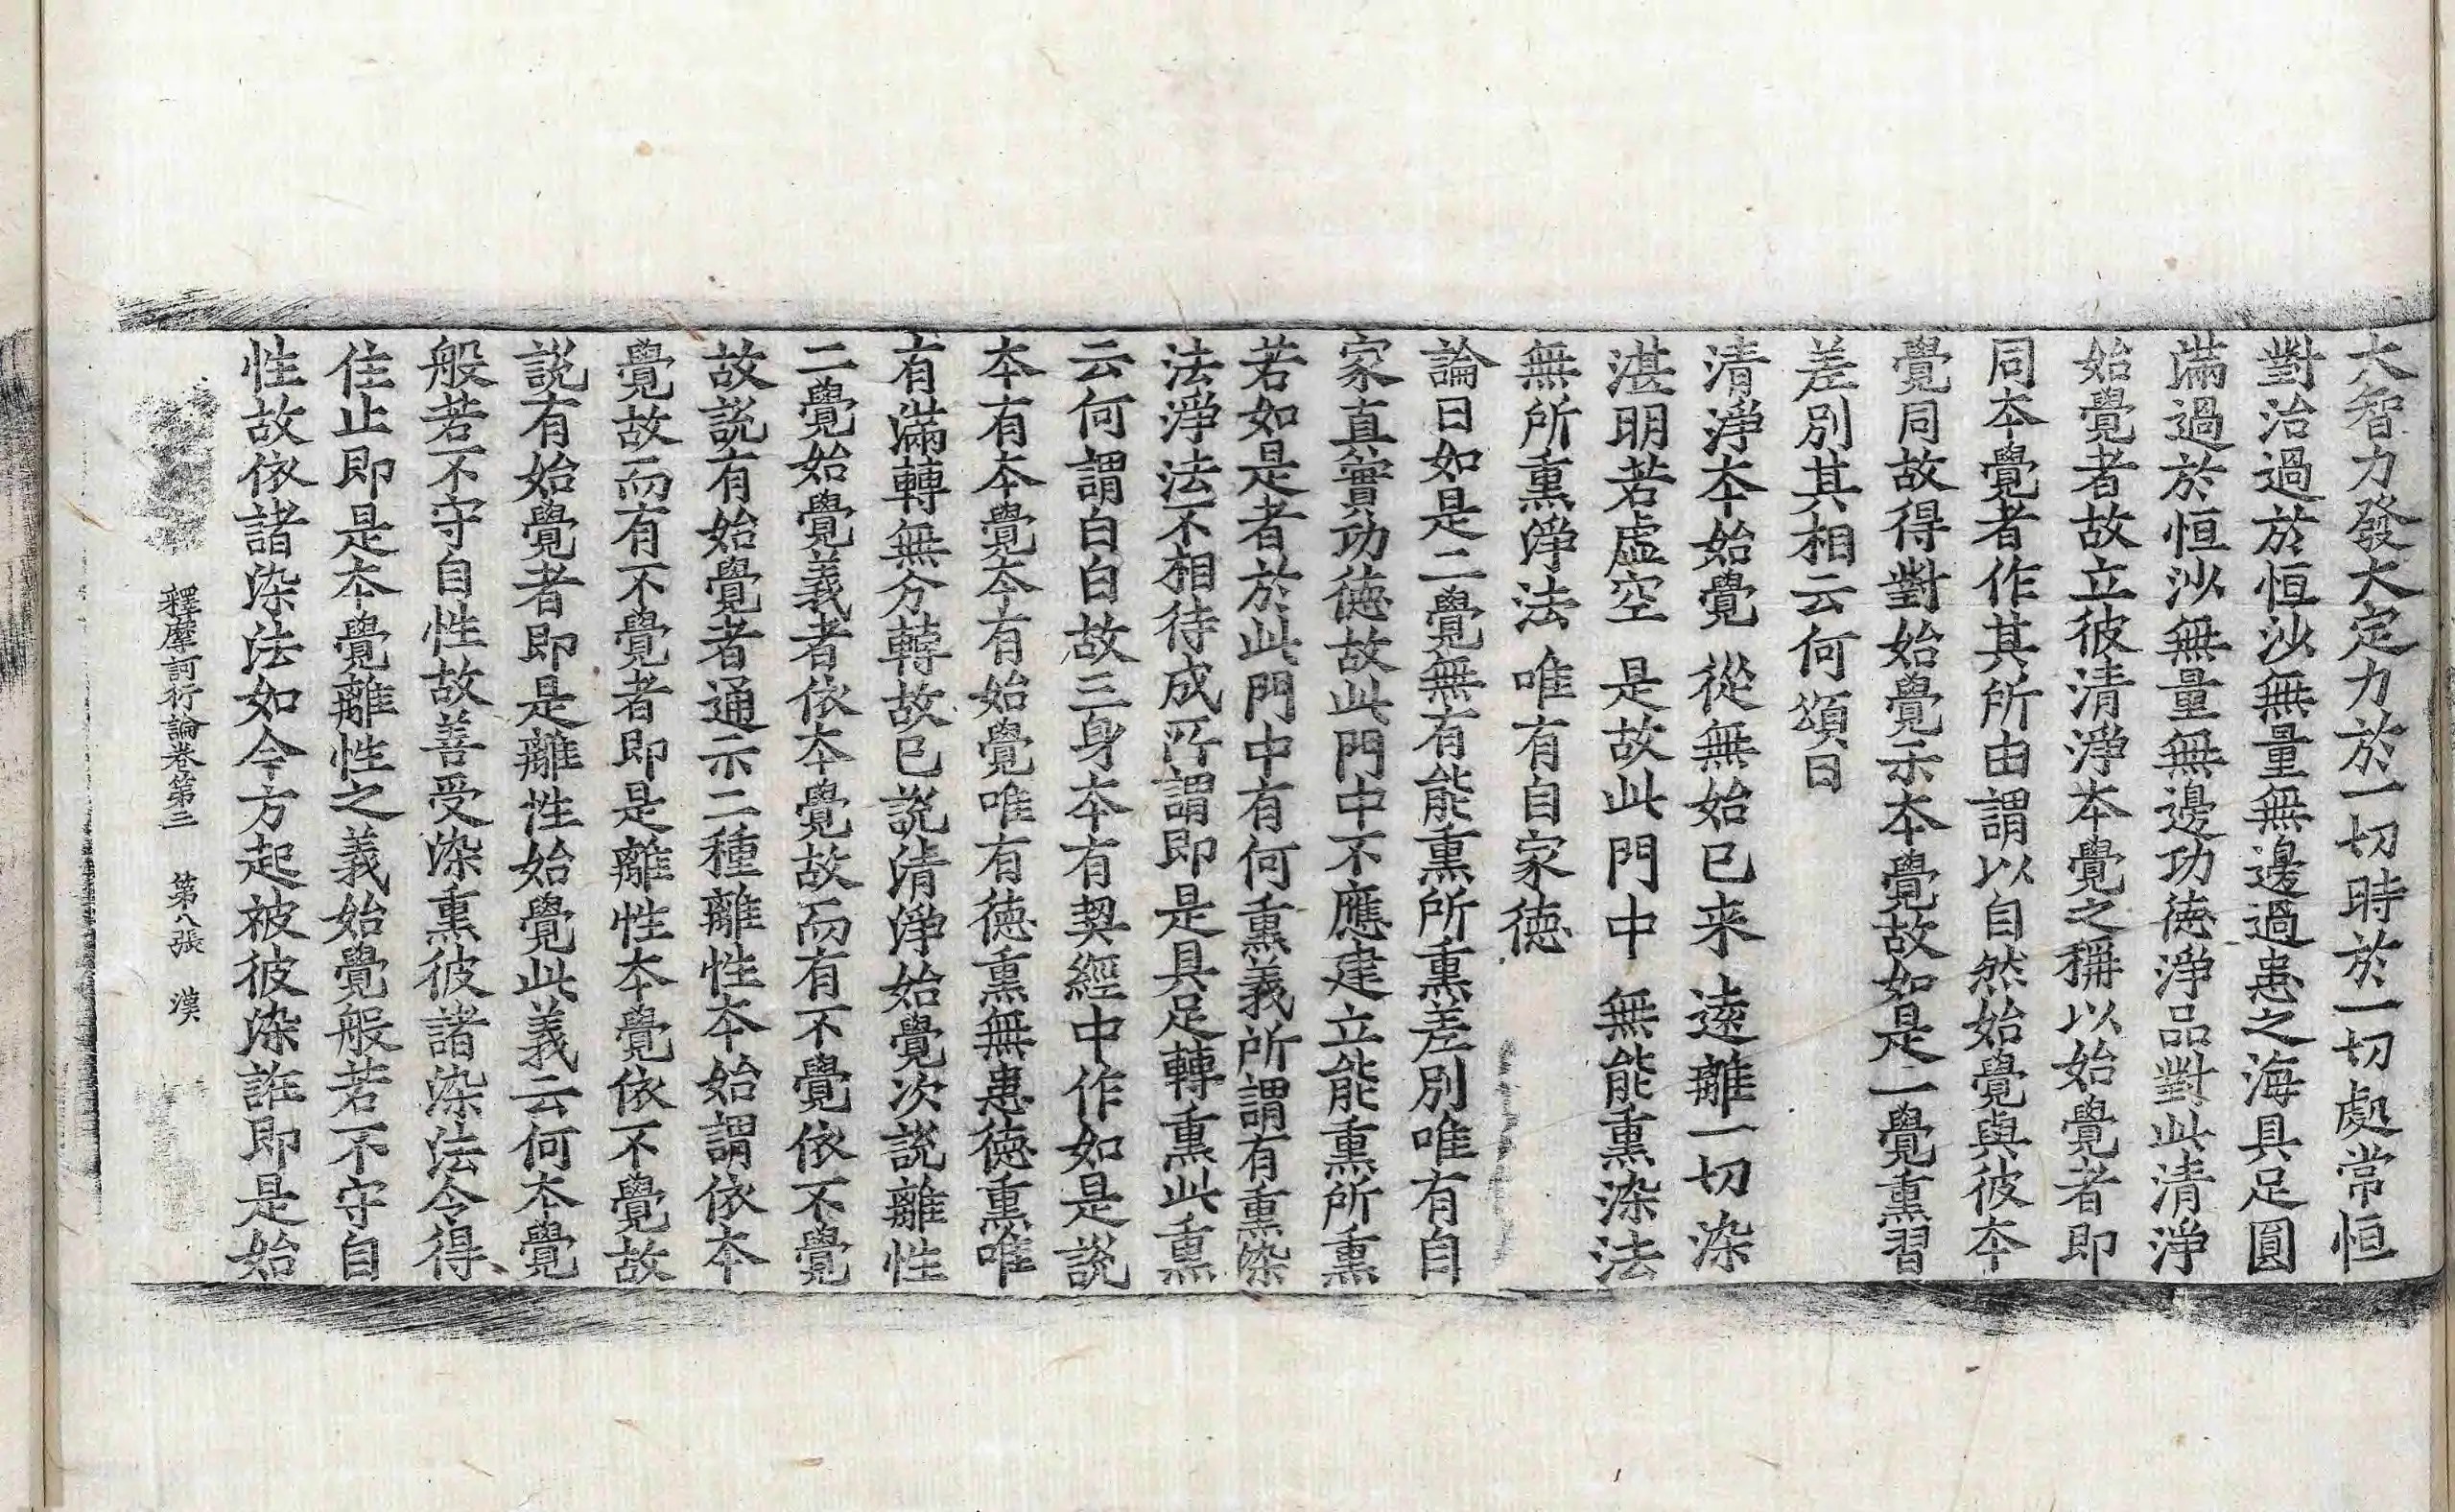 大智力發大定力於一切時於一切處常恒
對治過於恒沙無量無邊過患之海具足圓
滿過於恒沙無量無邊功德淨品對此清淨
始覺者故立彼清淨本覺之稱以始覺者即
同本覺者作其所由謂以自然始覺與彼本
覺同故得對始覺示本覺故如是一覺熏習
差別其相云何頌曰
清淨本始覺 從無始已来 遠離一切染
湛明若虛空 是故此門中 無能熏染法
無所熏淨法 唯有自家德
論曰如是二覺無有能熏所熏差別唯有自
家真實功德故此門中不應建立能熏所熏
若如是者於此門中有何熏義所謂有熏染
法淨法不相待成所謂即是具足轉熏此熏
云何謂白白故三身本有契經中作如是說
本有本覺本有始覺唯有德熏無患德熏唯
有滿轉無分轉故已說清淨始覺次說離性
二覺始覺義者依本覺故而有不覺依不覺
故說有始覺者通示二種離性本始謂依本
覺故而有不覺者即是離性本覺依不覺故
說有始覺者即是離性始覺此義云何本覺
般若不守自性故善受染熏彼諸染法令得
住止即是本覺離性之義始覺般若不守自
性故依諸染法如今方起被彼染誑即是始
釋摩訶衍論卷第三 第八張 漠